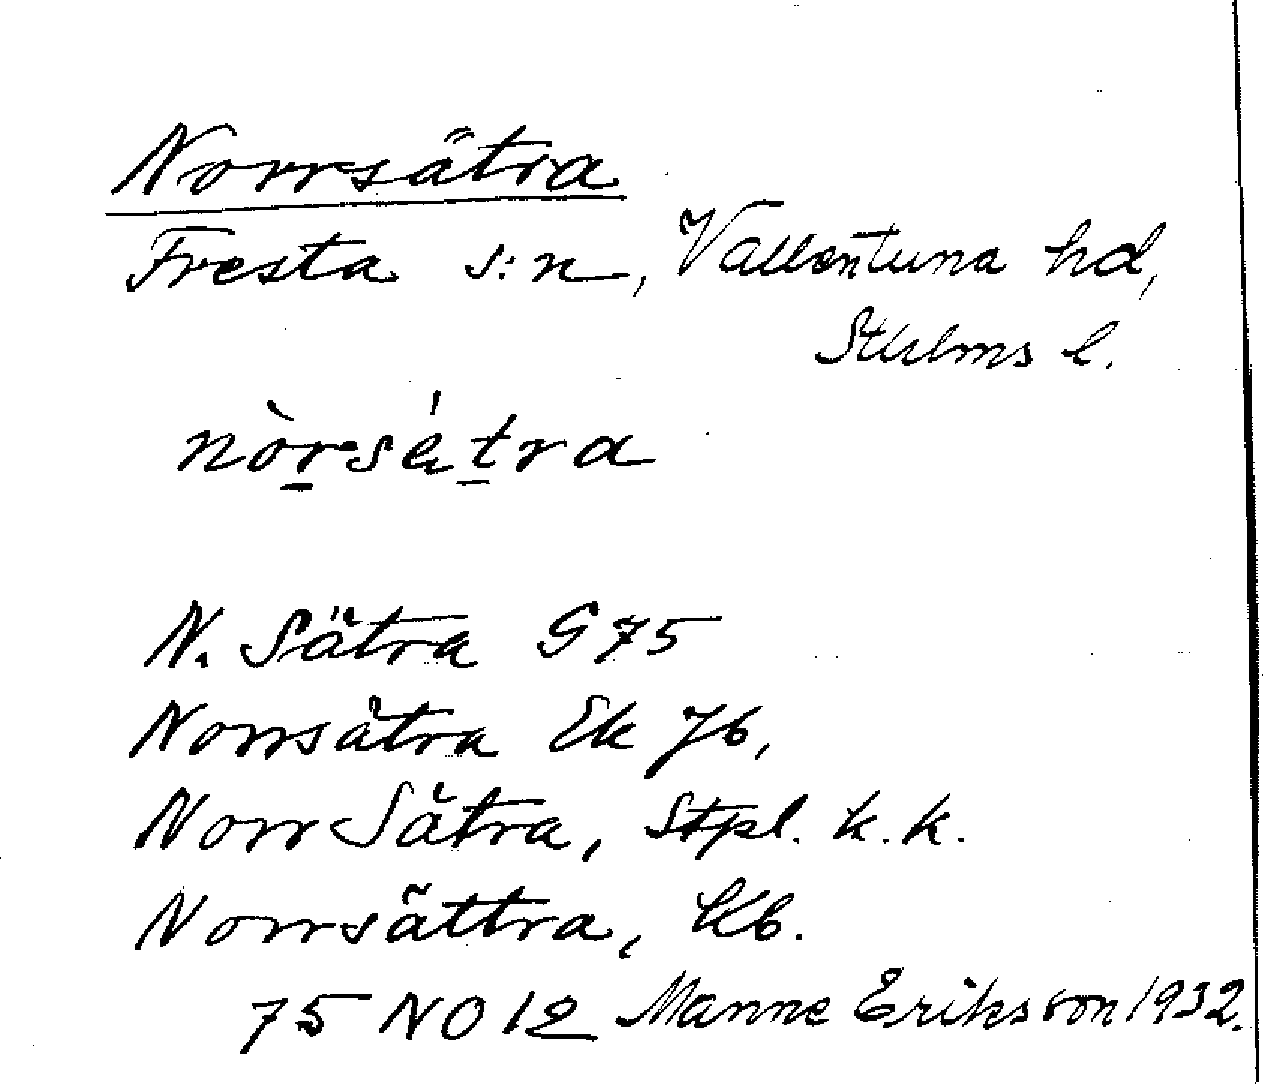 Norrsätra
Fresta s:n, Vallentuna hd,
Sthlms l.
nòrsétra
N. Sätra G 75
Norrsätra Ek Jb,
Norr Sätra, Stpl. k. k.
Norrsättra, Kb.
75 NO 12 Manne Eriksson 1932.